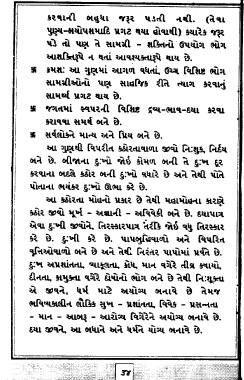 કરવાની બહુધા જરૂર પડતી નથી. (તેવા
પુણ્ય-ક્ષયોપશમાદિ પ્રગટ થયા હોવાથી) ક્યારેક જરૂર
પડે તો પણ તે સામગ્રી - શક્તિનો ઉપયોગ ભોગ
આશક્તિરૂપે ન થતાં આવશ્યક્તારૂપે થાય છે.
ક્રમશઃ આ ગુણમાં આગળ વધતાં, ઉગ્ર વિશિષ્ટ ભોગ
સામગ્રીઓનો પણ સાહજિક રીતે ત્યાગ કરવાનું
સામર્થ્ય પ્રગટ થાય છે.
જગતમાં સ્વપરની વિશિષ્ટ દ્રવ્ય-ભાવ-દયા કરવા
કરાવવા સમર્થ બને છે.
સર્વલોકને માન્ય અને પ્રિય બને છે.
આ ગુણથી વિપરીત કઠોરતાવાળા જીવો નિઃશુક, નિર્દય
બને છે. બીજાના દુઃખો જોઈ કોમળ બની તે દુઃખ દૂર
કરવાના બદલે કઠોર બની દુઃખો વધારે છે અને તેથી પોતે
પોતાના ભયંકર દુઃખો ઊભા કરે છે.
આ કઠોરતા મોહનો પ્રકાર છે તેથી મહામોહના કારણે
કઠોર જીવો મૂર્ખ - અજ્ઞાની - અવિવેકી બને છે. દયાપાત્ર
એવા દુઃખી જીવોને, તિરસ્કારપાત્ર તિર્રીકે જોઈ વધુ તિરસ્કાર
કરે છે. દુઃખી કરે છે. પાપબુદ્ધિવાળો અને વિપરિત
વૃત્તિઓવાળો બને છે અને તેથી નિરંતર પાપોમાં પ્રવર્તે છે.
દુઃખ અપ્રશાંતતા, વ્યાકૂલતા, ક્રોધ, માન વગેરે તીવ્ર કષાયો,
દીનતા, કામુક્તા વગેરે દોષોનો ભોગ બને છે તેથી નિઃશૂક્તા
એ જીવને, ધર્મ માટે અયોગ્ય બનાવે છે તેમજ
ભવિષ્યકાલીન લૌકિક સુખ - પ્રશાંતતા, વિવેક - પ્રસન્નતા
- માન - આબરૂ - આરોગ્ય વિગેરેને અયોગ્ય બનાવે છે.
દયા જીવને, આ બધાને અને ધર્મને યોગ્ય બનાવે છે.